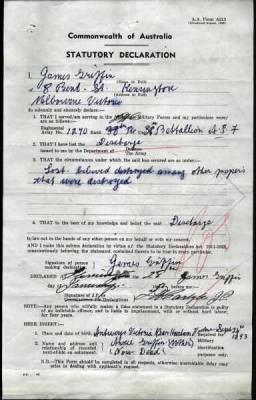 A.A. Form A112
Commonwealth of Australia
STATUTORY DECLARATION
I, James Griffin
of 8 Bent St. Kensington
Melbourne Victoria
do solemnly and sincerely declare:
1. THAT I served/am serving in the Military Forces and my particulars were/
are as follows:
Regimental
Army No. 1270 Rank 38 Battallion A.I.F
2. THAT I have lost the Discharge
issued to me by the Department of the Army
3. THAT the circumstances under which the said loss occurred are as under:
Lost believed destroyed among other papers
that were destroyed
4. THAT to the best of my knowledge and belief the said Discharge
is/are not in the hands of any other person on my behalf or with my consent:
AND I make this solemn declaration by virtue of the Statutory Declarations Act
conscientiously believing the statements contained therein to be true in every particular.
Signature of person
making declaration James Griffin
DECLARED at Kensington 28 James Griffin
Signature of J.P.
NOTE.—Any person who wilfully makes a false statement in a Statutory Declaration is guilty of
an indictable offence, and is liable to imprisonment, with or without hard labour for
four years.
HERE INSERT:
1. Place and date of birth Victoria
2. Name and address and
relationship of recorded
next-of-kin on enlistment Griffin (Mother)
(Now Dead)
Required for
Military
identification
purposes only.
N.B.—This Form should be completed in all respects, otherwise unavoidable delay may
occur in dealing with applicant's request.